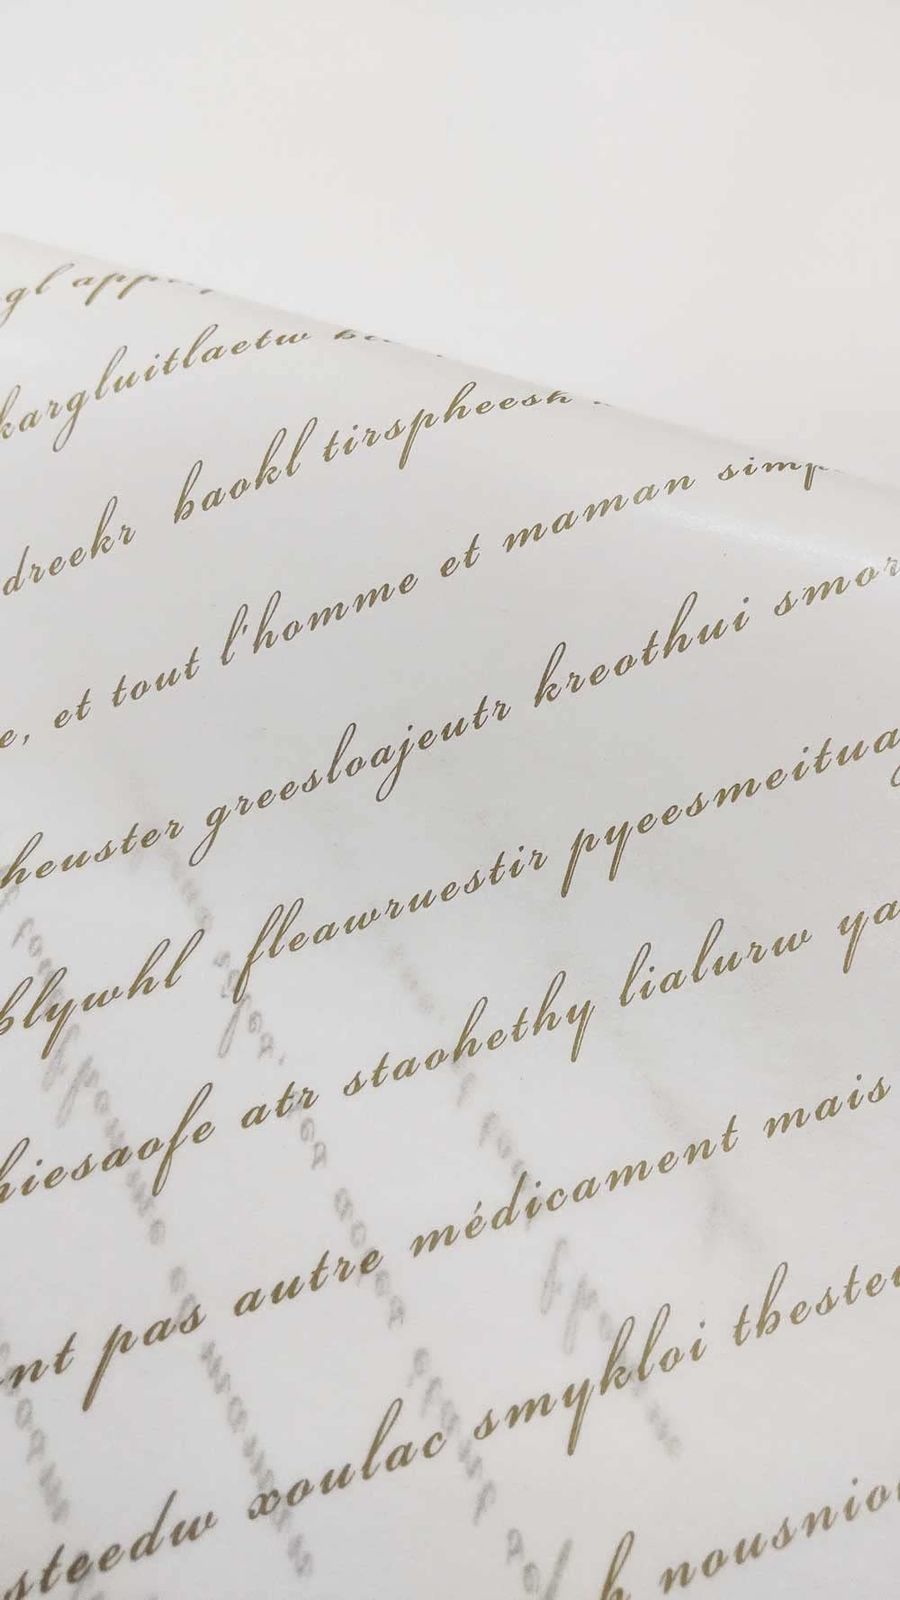 gl
kargluitlaetw
dreekr baokl tirspheesk
e, et tout l'homme et maman simp
heuster greesloajeutr kreothui smor
blywhl fleawruestir pyeesmeitua
hiesaofe atr staohethy lialurw ya
nt pas autre médicament mais
steedw xoulac smykloi thester
h nousnio